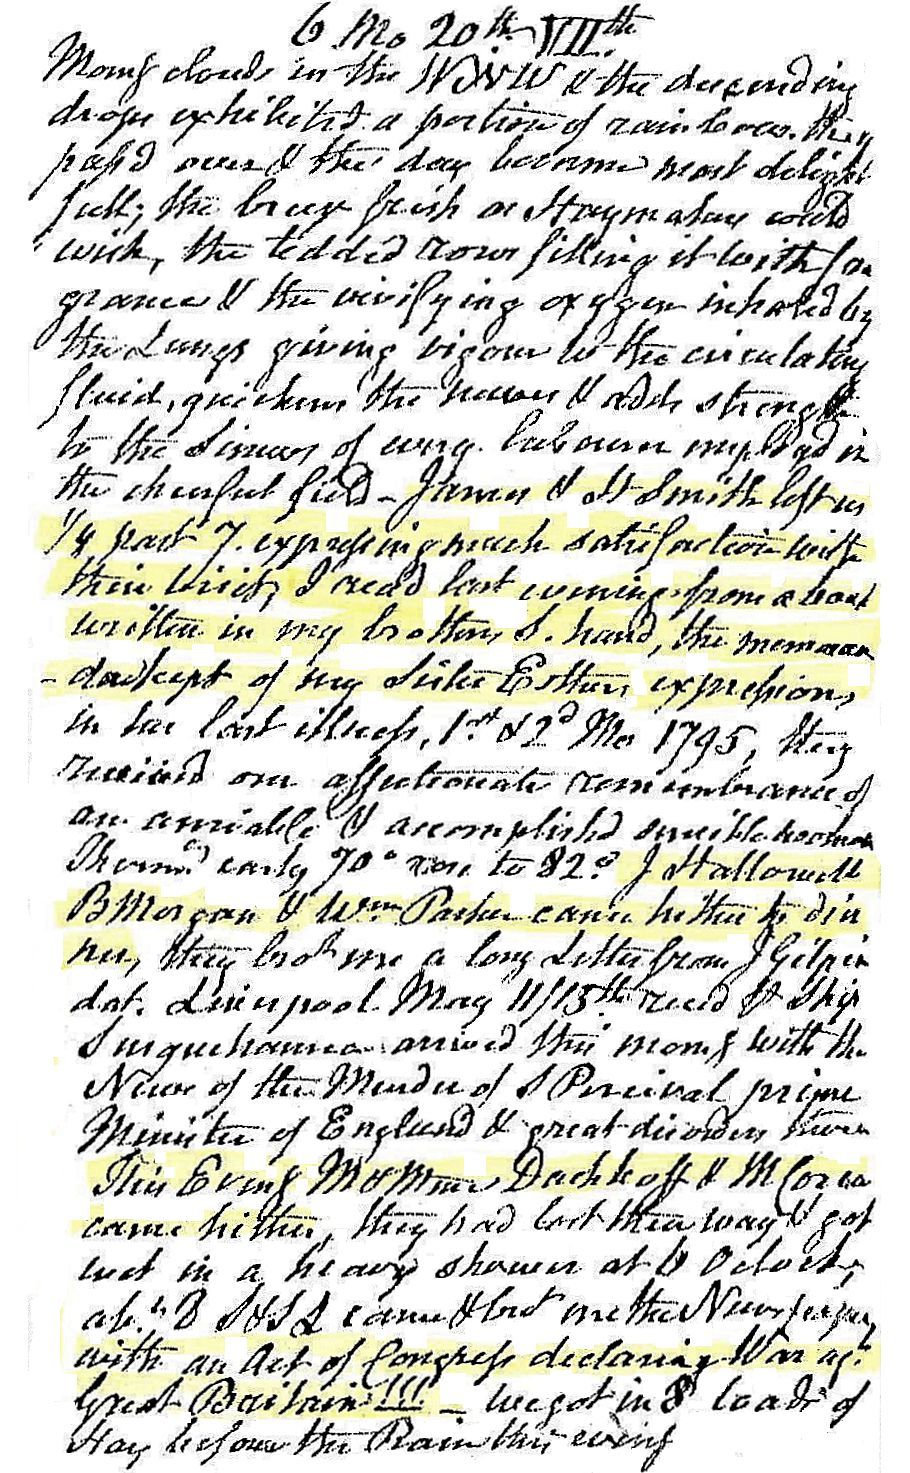 6 Mo 20th VIIth
Morng clouds in the WNW & the descending
drops exhibited a portion of rainbow. they
passd over & the day became most delight
full; the breeze fresh as Haymakers could
wish, the tedded rows filling it with fra
grance & the vivifying oxygen inhaled by
the Lungs giving vigour to the circulating
fluid, quickens the nerves & adds strength
to the Sinews of every labourer employd in
the cheerful field - James & H Smith left us
1/4 past 7. expressing much satisfaction with
their visit, I read last evening from a book
written in my brother S. hand, the memoran
-da kept of my Sister Esthers expressions
in her last illness, 1st & 2d Mo 1795, they
revived our affectionate remembrance of
an amiable & accomplishd sensible woman
Thermd early 70° rose to 82° J Hallowell
B Morgan & Wm Parker came hither to din
ner, they brot me a long Letter from J Gilpin
dat. Liverpool May 11/15th recd Ship
Susquehanna arrived this morng with the
News of the Murder of S Percival prime
Minister of England & great disorders there
This Eveng M & Mme Dachkoff & M Correa
came hither, they had lost their way & got
wet in a heavy shower at 6 OClock,
abt 8 S & S L came & brot me the Newspaper
with an Act of Congress declaring War agt
Great Britain!!! - we got in 8 loads of
Hay before the Rain this eveng